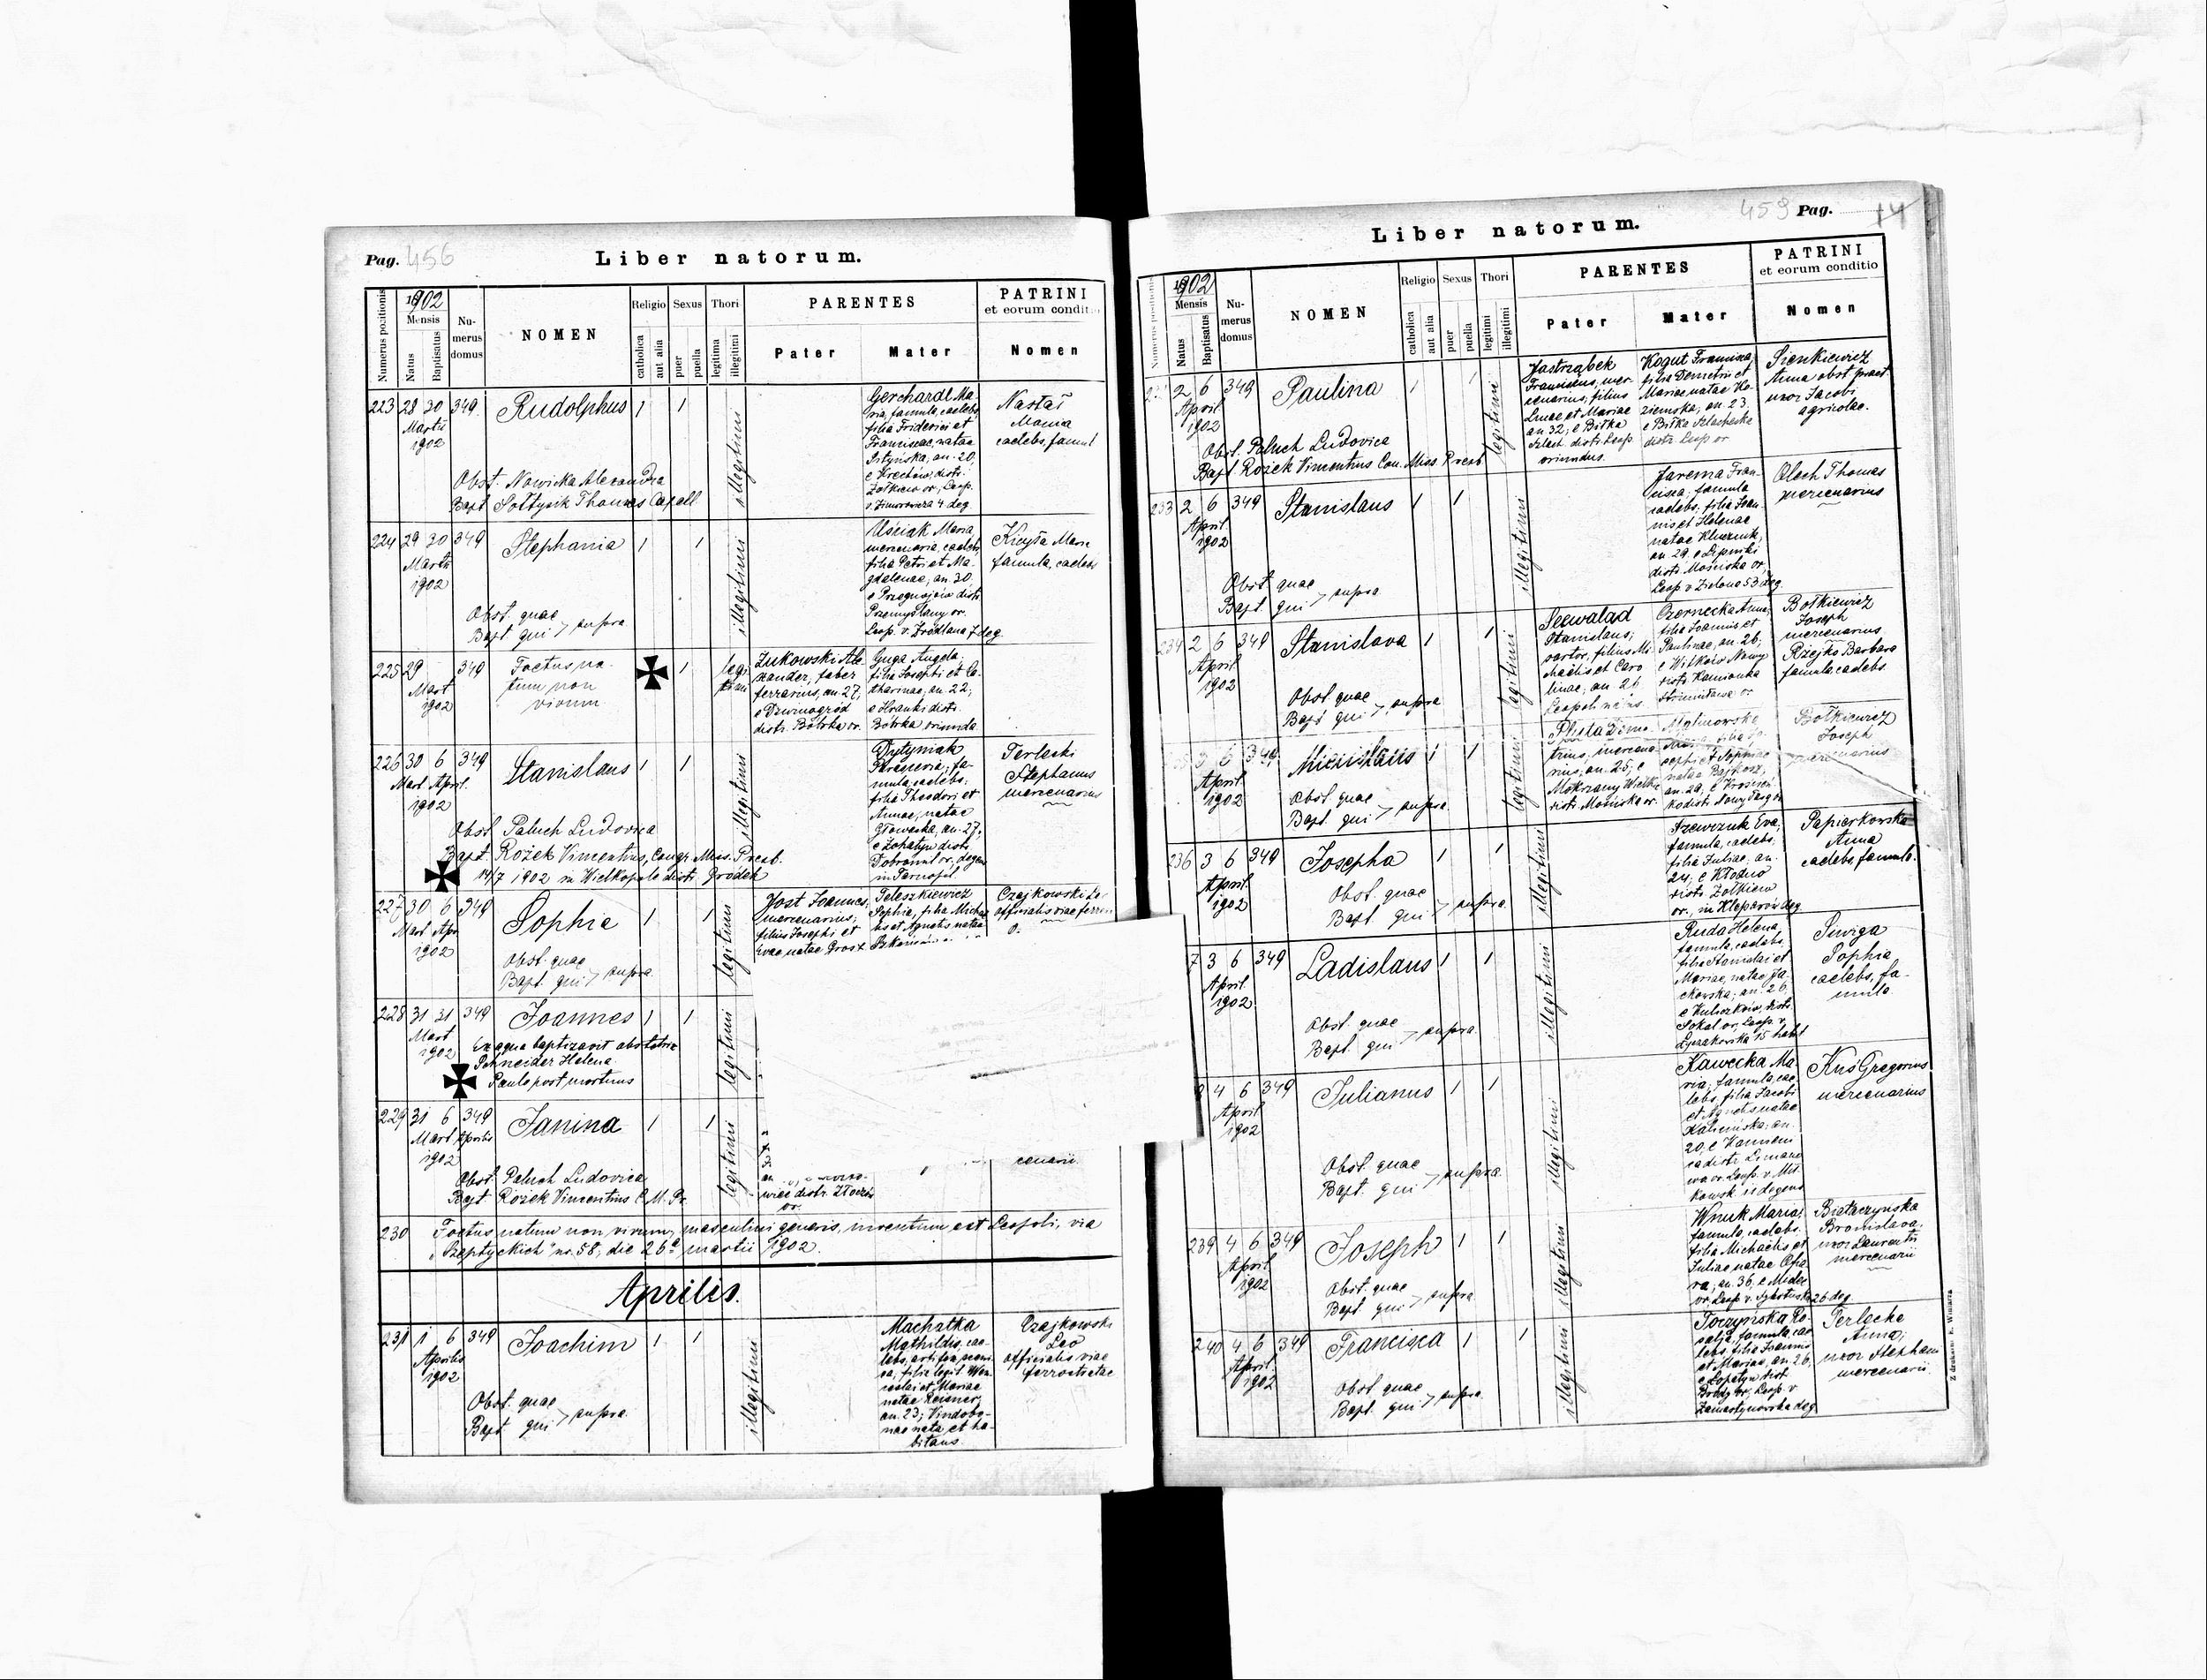 Pag. 456
Liber natorum.
Numerus positionis
1902
Mensis
Natus
Baptisatus
Nu-
merus
domus
NOMEN
Religio
catholica
aut alia
Sexus
puer
puella
Thori
legitima
illegitimi
PARENTES
Pater
Mater
PATRINI
et eorum conditio
Nomen
223 28 30 349 Rudolphus 1 1 illegitimi
Martii
1902
Gerchardt Ma-
ria, famula, caelebs,
filia Friderici et
Franciscae, natae
an. 20,
e Krechów distr.
Żółkiew or., Leop.
v. Zimorowicza 4 deg.
Maria
caelebs, famul
Obst. Nowicka Alexandra
Bapt. Sołtysik Thomas Capell
224 29 30 349 Stephania 1 1 illegitimi
Martii
1902
Uściak Maria
mercenaria, caelebs,
filia Petri et Ma-
gdalenae, an. 30,
e Przegnojów distr.
Przemyślany or.
Leop. v. Źródlana 7 deg.
Maria
famula, caelebs
Obst. quae
Bapt. qui > supra
225 29 349 Foetus na-
tum non
vivum
1 legi-
timi
Mart
1902
Żukowski Ale-
xander, faber
ferrarius, an. 27,
e Dzwinogród
distr. Bóbrka or.
Guga Angela,
filia Josephi et Ca-
tharinae, an. 22,
e Hranki distr.
Bóbrka oriunda
226 30 6 349 Stanislaus 1 1 illegitimi
Mart April
1902
Parascevia, fa-
mula, caelebs,
filia Theodori et
Annae, natae
Głowacka, an. 27,
e Żohatyn distr.
Dobromil or., degens
in Tarnopol
Terlecki
Stephanus
mercenarius
Obst. Paluch Ludovica
Bapt. Rożek Vincentius, Congr. Miss. Presb.
14/7 1902 in Wielkopole distr. Gródek
227 30 6 349 Sophia 1 1 legitimi
Mart Apr
1902
Jost Joannes,
mercenarius,
filius Josephi et
Evae natae Grost
Teleszkiewicz
Sophia, filia Michae-
lis et Agnetis natae
Czajkowski Le
officialis viae ferrea
Obst. quae
Bapt. qui > supra
228 31 31 349 Joannes 1 1 legitimi
Mart
1902
Ex aqua baptizavit obstetrix
Schneider Helena.
Paulo post mortuus
229 31 6 349 Janina 1 1 legitimi
Mart Aprilis
1902
cenarii
wiec distr. Złoczów
or.
Obst. Paluch Ludovica
Bapt. Rożek Vincentius C. M. Pr.
230 Foetus natum non vivum, masculini generis, inventum est Leopoli, via
„Szeptyckich" nr. 58, die 26ª martii 1902.
Aprilis.
231 1 6 349 Joachim 1 1 illegitimi
Aprilis
1902
Machatka
Mathildis, cae-
lebs, artifex sceni-
ca, filia legit. Wen-
ceslai et Mariae
natae Reisner,
an. 23, Vindobo-
nae nata et ha-
bitans.
Czajkowski
Leo
officialis viae
ferrostratae
Obst. quae
Bapt. qui > supra
459 Pag. 14
Liber natorum.
Numerus positionis
1902
Mensis
Natus
Baptisatus
Nu-
merus
domus
NOMEN
Religio
catholica
aut alia
Sexus
puer
puella
Thori
legitimi
illegitimi
PARENTES
Pater
Mater
PATRINI
et eorum conditio
Nomen
2 6 349 Paulina 1 1 legitimi
April
1902
Jastrząbek
Franciscus, mer-
cenarius, filius
Lucae et Mariae
an. 32, e Biłka
Szlach. distr. Leop
oriundus.
Kogut Francisca,
filia Demetrii et
Mariae natae Ko-
ziemska, an. 23,
e Biłka Szlachecka
distr. Leop or
Sienkiewicz
Anna obst. pract.
uxor Jacobi
agricolae.
Obst. Paluch Ludovica
Bapt. Rożek Vincentius Con. Miss. Presb
233 2 6 349 Stanislaus 1 1 illegitimi
April
1902
Jarema Fran-
cisca, famula
caelebs, filia Joan-
nis et Helenae
natae
an. 29, e Lipniki
distr. Mościska or,
Leop v Zielona 53 deg.
Olech Thomas
mercenarius
Obst. quae
Bapt. qui > supra
234 2 6 349 Stanislava 1 1 legitimi
April
1902
Seewalad
Stanislaus,
sartor, filius Mi-
chaelis et Caro
linae, an 26
Leopoli na us.
Czernecka Anna,
filia Joannis et
Paulinae, an. 26,
e Witków Nowy
distr. Kamionka
Strumiłowa or
Bołkiewicz
Joseph
mercenarius
Rzejko Barbara
famula caelebs.
Obst. quae
Bapt. qui > supra
3 6 349 1 1 legitimi
April
1902
trius, mercena-
rius, an. 25, e
Mokrzany Wielkie
distr. Mościska or.
Malinowska
Maria, filia Jo-
sephi et Sophiae
natae
an. 29, e Krościen-
ko distr. Nowy Targ or
Bołkiewicz
Joseph
mercenarius
Obst. quae
Bapt. qui > supra
236 3 6 349 Josepha 1 1 illegitimi
April
1902
Szewczuk Eva,
famula, caelebs,
filia Juliae, an.
24, e Kłodno
distr. Żółkiew
or., in Kleparów deg.
Papierkowska
Anna
caelebs, famula.
Obst. quae
Bapt. qui > supra
7 3 6 349 Ladislaus 1 1 illegitimi
April
1902
Ruda Helena,
famula, caelebs,
filia Stanislai et
Mariae, natae Ja-
ckowska, an. 26,
e Kuliczków, distr.
Sokal or., Leop. v.
Łyczakowska 15 habit
Siwiga
Sophia
caelebs, fa-
mula.
Obst. quae
Bapt. qui > supra
8 4 6 349 Julianus 1 1 illegitimi
April
1902
Kawecka Ma-
ria, famula, cae-
lebs, filia Jacobi
et Agnetis natae
Kalicińska, an.
20, e Kamieni
ca distr. Limano
wa or. Leop. v. Mił
kowsk 11 degens
Kuś Gregorius
mercenarius
Obst. quae
Bapt. qui > supra
239 4 6 349 Joseph 1 1 illegitimi
April
1902
Wnuk Maria,
famula, caelebs,
filia Michaelis et
Juliae natae Opa
ra, an. 36, e
or. Leop v. Sykstuska 26 deg.
Białaczyńska
Bronislava,
uxor Laurentii
mercenarii
Obst. quae
Bapt. qui > supra
240 4 6 349 Francisca 1 1 illegitimi
April
1902
Toczyńska Ro-
salia, famula, cae
lebs, filia Joannis
et Mariae, an. 26,
e Łopatyn distr
Brody or., Leop. v
Zamarstynowska deg
Terlecka
Anna,
uxor Stephani
mercenarii
Obst. quae
Bapt. qui > supra.
Z drukarni E. Winiarza